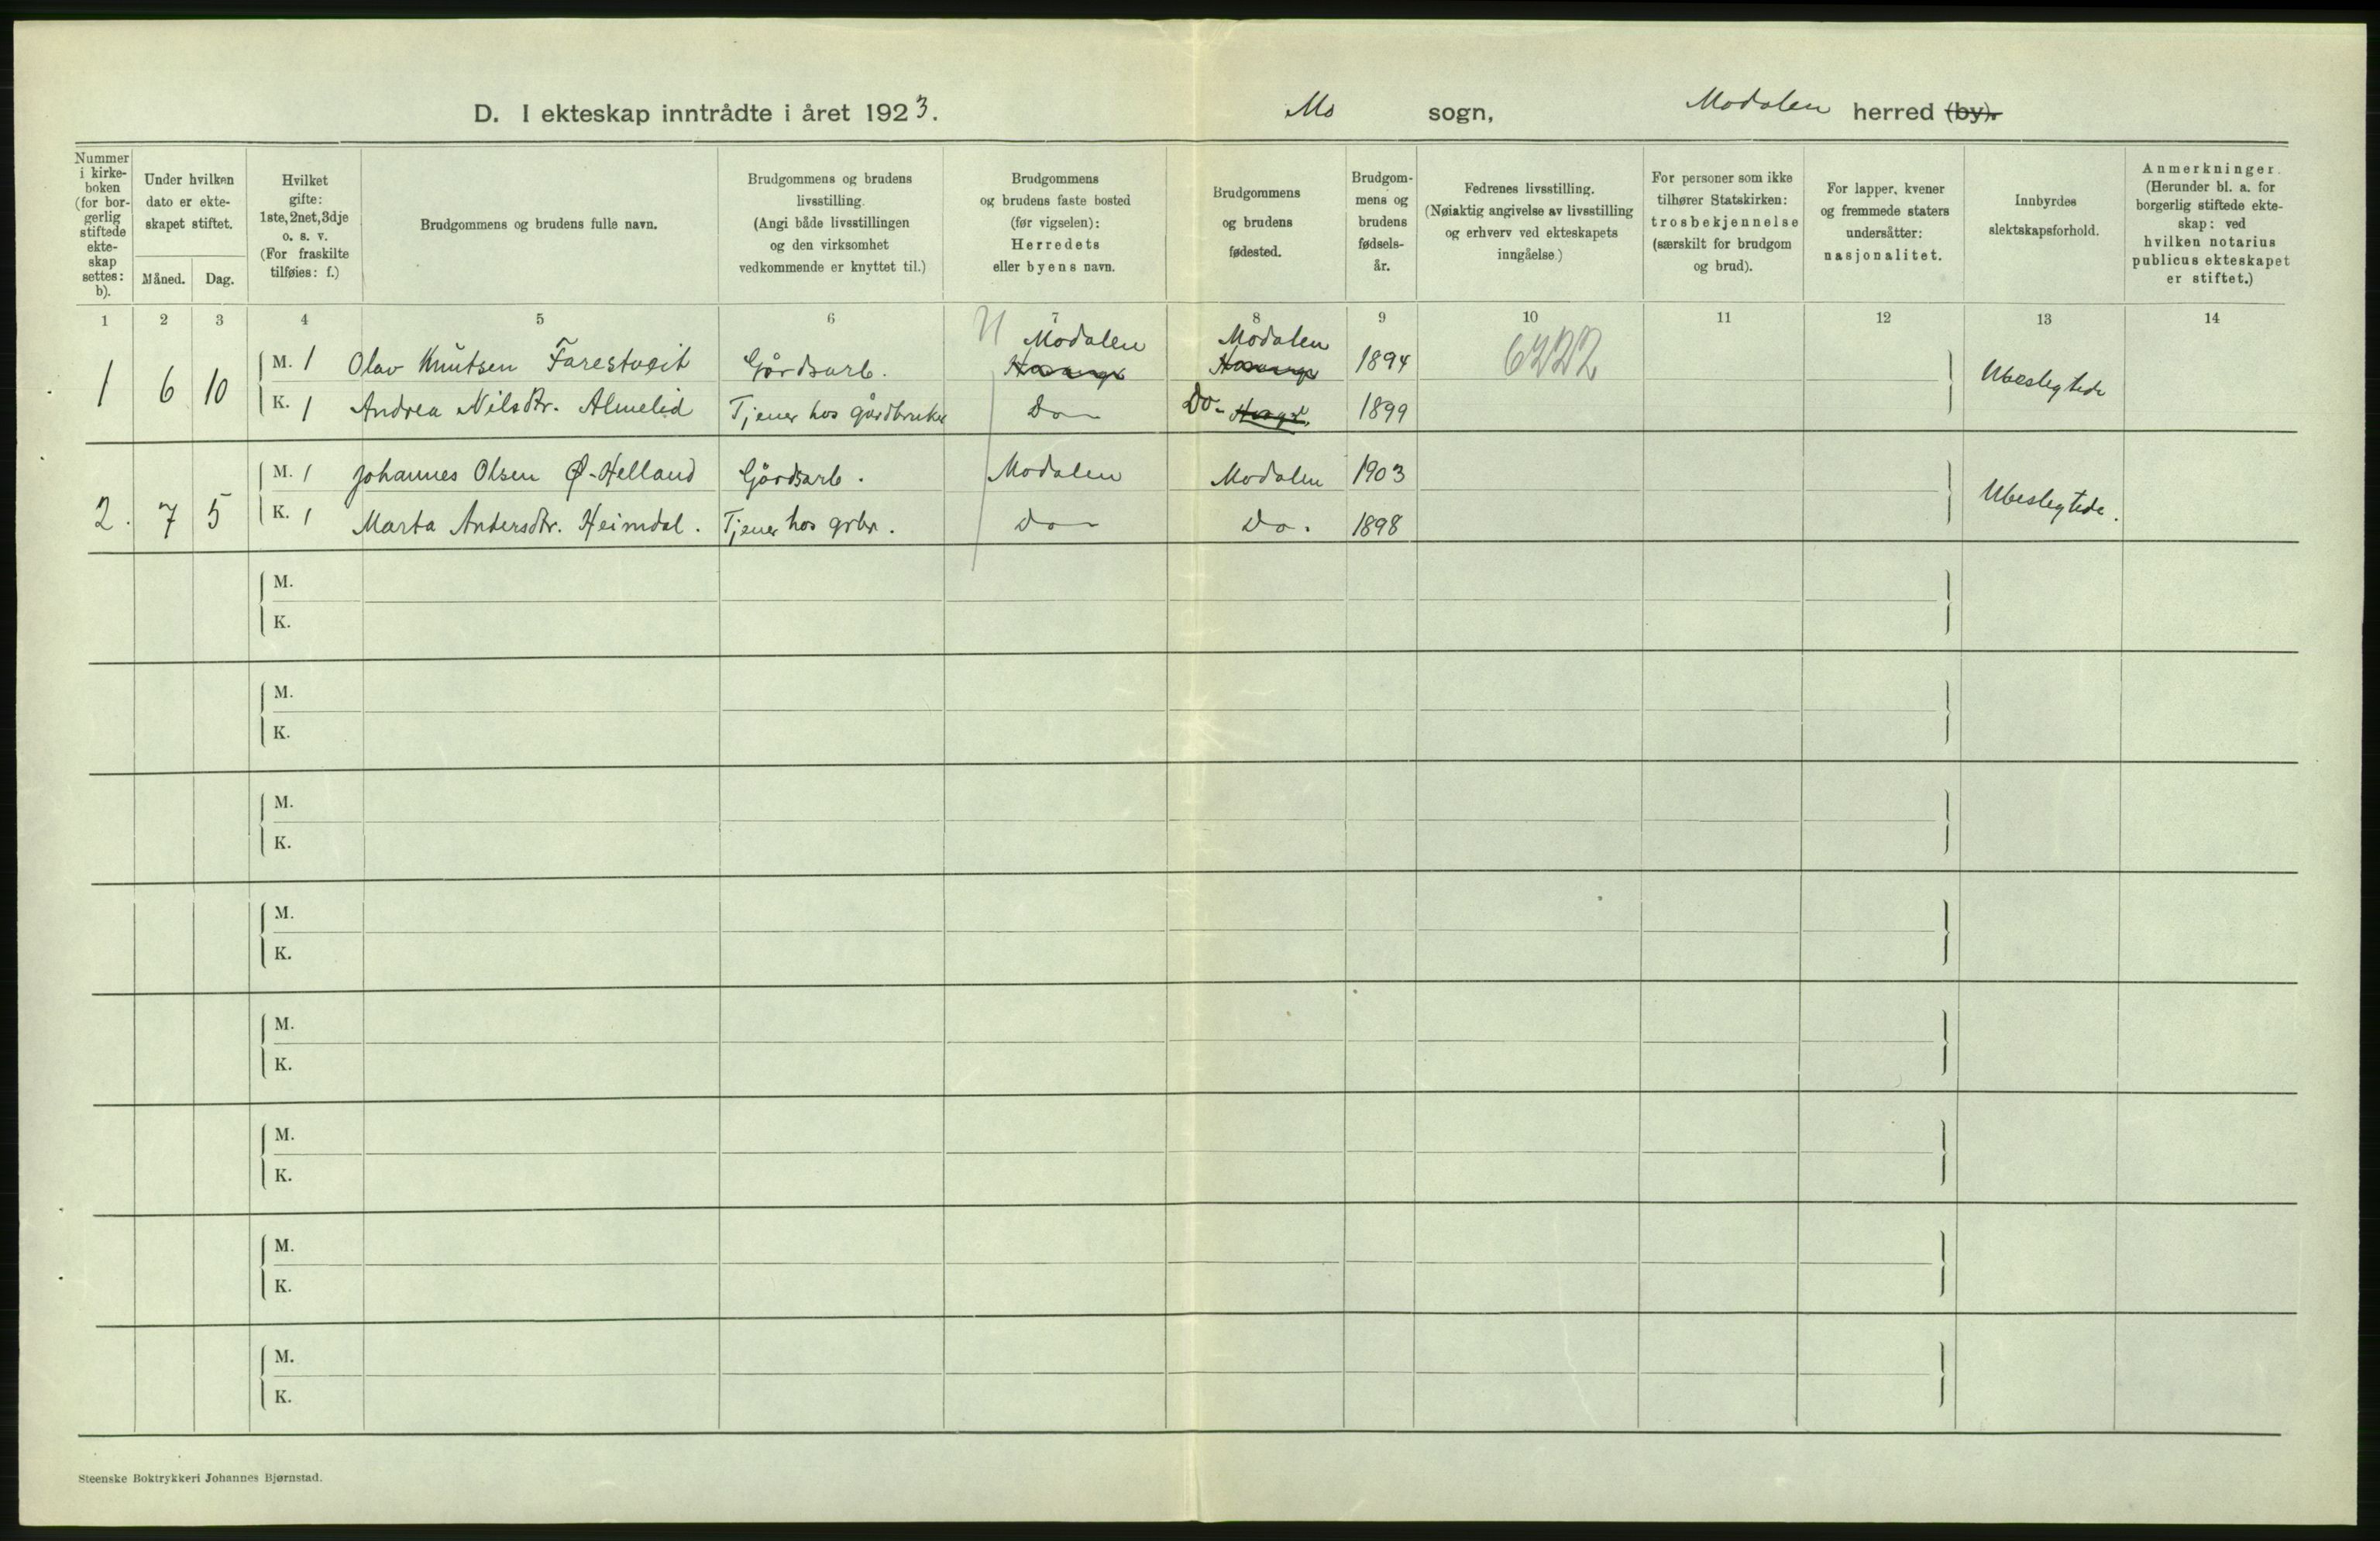 D. I ekteskap inntrådte i året 1923. Mo sogn, Modalen herred (by).
Nummer i kirke- boken (for bor- gerlig stiftede ekte- skap settes: b).
Under hvilken dato er ekte- skapet stiftet.
Måned. Dag.
Hvilket gifte: 1ste, 2net, 3dje o. s. v. (For fraskilte tilføies: f.)
Brudgommens og brudens fulle navn.
Brudgommens og brudens livsstilling. (Angi både livsstillingen og den virksomhet vedkommende er knyttet til.)
Brudgommens og brudens faste bosted (før vigselen): Herredets eller byens navn.
Brudgommens og brudens fødested.
Brudgom- mens og brudens fødsels- år.
Fedrenes livsstilling. (Nøiaktig angivelse av livsstilling og erhverv ved ekteskapets inngåelse.)
For personer som ikke tilhører Statskirken: trosbekjennelse (særskilt for brudgom og brud).
For lapper, kvener og fremmede staters undersåtter: nasjonalitet.
Innbyrdes slektskapsforhold.
Anmerkninger. (Herunder bl. a. for borgerlig stiftede ekte- skap: ved hvilken notarius publicus ekteskapet er stiftet.)
1 2 3 4 5 6 7 8 9 10 11 12 13 14
Modalen Modalen
1 6 10 M. 1 Olav Knutsen Farestveit Gårdsarb. 1894 6222 Ubeslegtede
K. 1 Andrea Nilsdtr. Almelid Tjener hos gårdbruker Do Do 1899
2. 7 5 M. 1 Johannes Olsen Ø-Helland Gårdsarb. Modalen Modalen 1903 Ubeslegtede.
K. 1 Marta Andersdtr. Heimdal. Tjener hos grbr. Do Do. 1898
M.
K.
M.
K.
M.
K.
M.
K.
M.
K.
M.
K.
M.
K.
M.
K.
Steenske Boktrykkeri Johannes Bjørnstad.